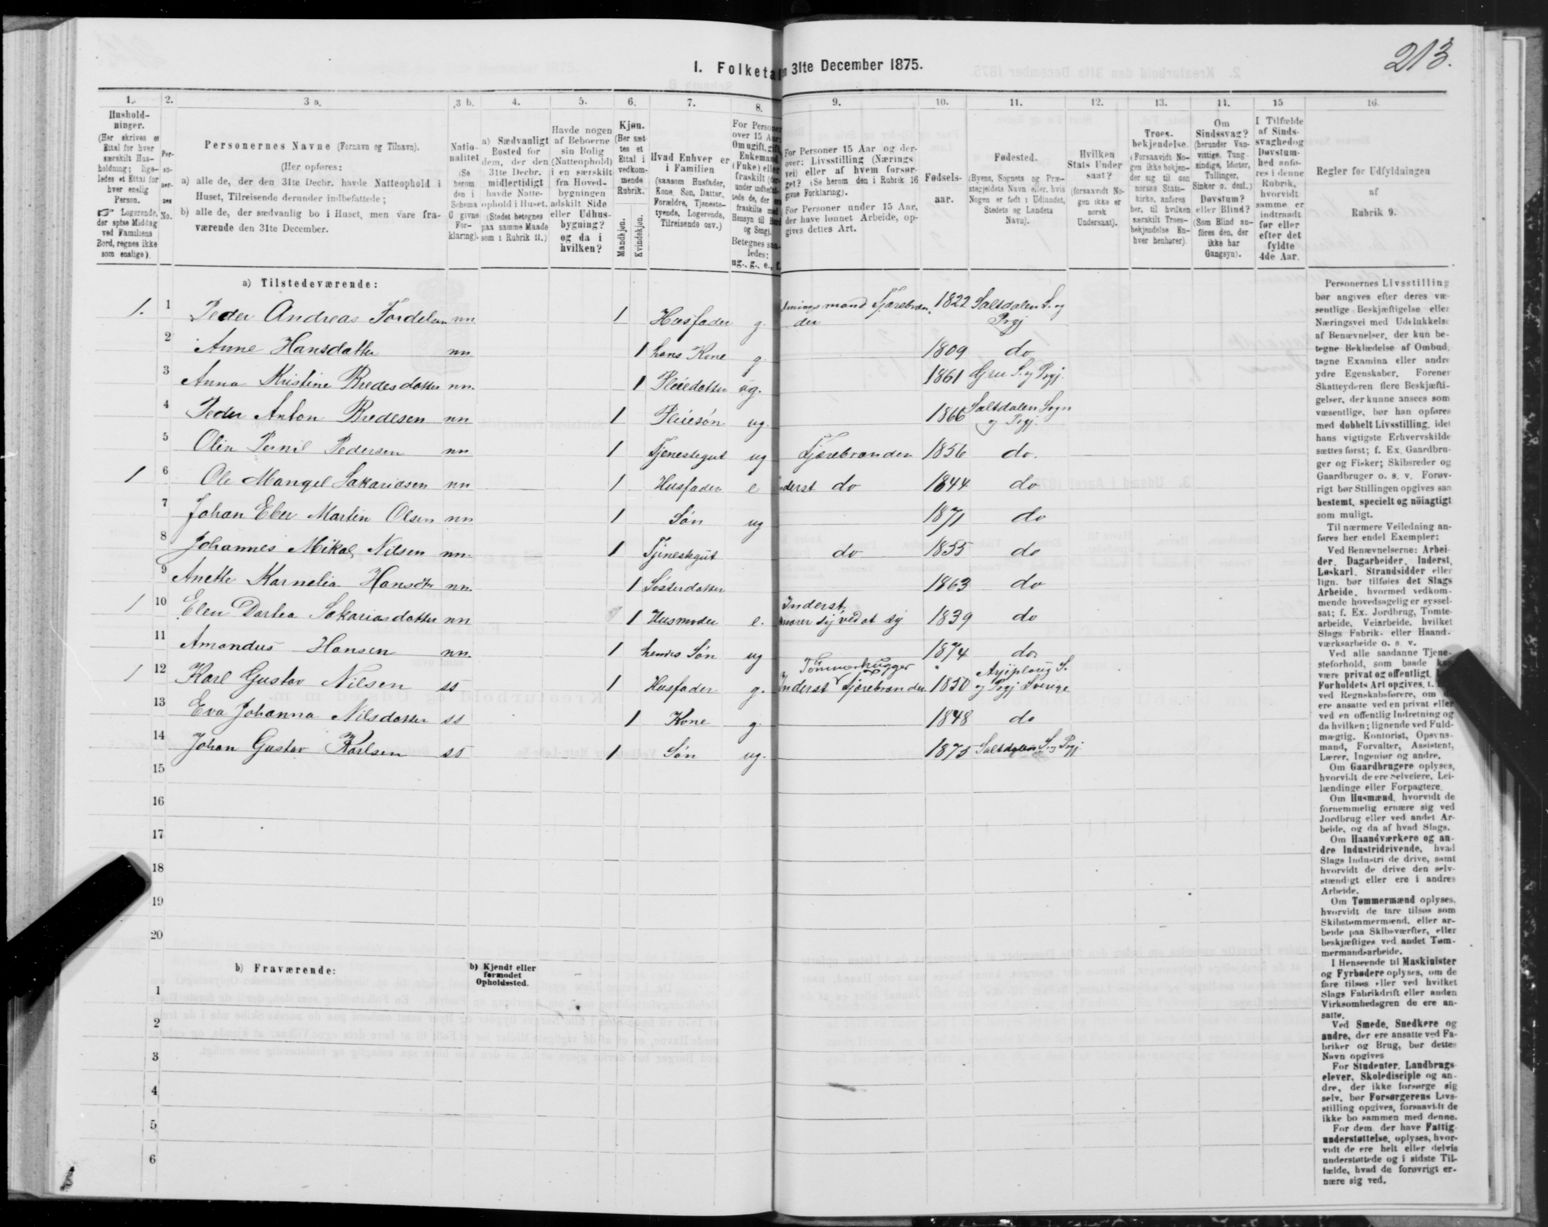 213.
I. Folketa n 31te December 1875.
1. 2. 3 a. 3 b. 4. 5. 6. 7. 8. 9. 10. 11. 12. 13. 14. 15 16.
Hushold-
ninger.
(Her skrives et
Ettal for hver
særskilt Hus-
holdning; lige-
ledes et Ettal for
hver enslig
Person.
☞ Logerende,
der spise Middag
ved Familiens
Bord, regnes ikke
som enslige).
Per-
so-
ner-
nes
No.
Personernes Navne (Fornavn og Tilnavn).
(Her opføres:
a) alle de, der den 31te Decbr. havde Natteophold i
Huset, Tilreisende derunder indbefattede;
b) alle de, der sædvanlig bo i Huset, men vare fra-
værende den 31te December.
Natio-
nalitet
(Se
herom
den i
Schema
6 givne
For-
klaring).
a) Sædvanligt
Bosted for
dem, der den
31te Decbr.
midlertidigt
havde Natte-
ophold i Huset.
(Stedet betegnes
paa samme Maade
som i Rubrik 11.)
Havde nogen
af Beboerne
sin Bolig
(Natteophold)
i en særskilt
fra Hoved-
bygningen
adskilt Side
eller Udhus-
bygning?
og da i
hvilken?
Kjøn.
(Her sæt-
tes et
Ettal i
vedkom-
mende
Rubrik.
Mandkjøn.
Kvindekjøn.
Hvad Enhver er
i Familien
(saasom Husfader,
Kone, Søn, Datter,
Forældre, Tjeneste-
tyende, Logerende,
Tilreisende osv.)
For Personer
over 15 Aar:
Om ugift, gift,
Enkemand
(Enke) eller
fraskilt
Betegnes saa-
ledes:
ug., g., e., f.
For Personer 15 Aar og der-
over: Livsstilling (Nærings
vei) eller af hvem forsør-
get? (Se herom den i Rubrik 16
givne Forklaring).
For Personer under 15 Aar,
der have lønnet Arbeide, op-
gives dettes Art.
Fødsels-
aar.
Fødested.
(Byens, Sognets og Præ-
stegjeldets Navn eller, hvis
Nogen er født i Udlandet,
Stedets og Landets
Navn).
Hvilken
Stats Under
saat?
(forsaavidt No-
gen ikke er
norsk
Undersaat).
Troes-
bekjendelse.
(Forsaavidt No-
gen ikke bekjen-
der sig til den
norske Stats-
kirke, anføres
her, til hvilken
særskilt Troes-
bekjendelse En-
hver henhører).
Om
Sindssvag?
(herunder Van-
vittige, Tung-
sindige, Idioter,
Tullinger,
Sinker o. desl.)
Døvstum?
eller Blind?
(Som Blind an-
føres den, der
ikke har
Gangsyn).
I Tilfælde
af Sinds-
svaghed og
Døvstum-
hed anfø-
res i denne
Rubrik,
hvorvidt
samme er
indtraadt
før eller
efter det
fyldte
4de Aar.
Regler for Udfyldningen
af
Rubrik 9.
a) Tilstedeværende:
1. 1 Peder Andreas Fordelsen nn 1 Husfader g. Jærebræn 1822 Saltdalen S. og
der Pgj.
2 Anne Hansdatter nn 1 hans Kone g 1809 do
3 Anna Kristine Bredesdatter nn. 1 Pleiedatter ug. 1861 S. og Pgj.
4 Peder Anton Bredesen nn 1 Pleiesøn ug. 1866 Saltdalen Sogn
og Pgj.
5 Olin Pernil Pedersen nn 1 Tjenestegut ug Tjærebrænder 1856 do.
1 6 Ole Mangel Sakariasen nn 1 Husfader e Inderst do 1844 do
7 Johan Eber Martin Olsen nn 1 Søn ug 1871 do
8 Johannes Mikal Nilsen nn. 1 Tjenestegut do 1855 do
9 Anette Karnelia Hansdtr nn. 1 Søsterdatter 1863 do
1 10 Elen Dortea Sakariasdatter nn 1 Husmoder e. Inderst, nærer sig ved at sy 1839 do
11 Amandus Hansen nn. 1 hendes Søn ug 1874 do
1 12 Karl Gustav Nilsen ss 1 Husfader g. Inderst Tømmerhugger Tjærebrænder 1850 Arjeploug S.
og Pgj. Sverige
13 Eva Johanna Nilsdatter ss 1 Kone g. 1848 do
14 Johan Gustav Karlsen ss 1 Søn ug. 1875 Saltdalen S. og Pgj
15
16
17
18
19
20
b) Fraværende:
b) Kjendt eller
formodet
Opholdssted.
1
2
3
4
5
6
Personernes Livsstilling
bør angives efter deres væ-
sentlige Beskjæftigelse eller
Næringsvei med Udelukkelse
af Benævnelser, der kun be-
tegne Beklædelse af Ombud,
tagne Examina eller andre
ydre Egenskaber. Forener
Skatteyderen flere Beskjæfti-
gelser, der kunne ansees som
væsentlige, bør han opføres
med dobbelt Livsstilling, idet
hans vigtigste Erhvervskilde
sættes først; f. Ex. Gaardbru-
ger og Fisker; Skibsreder og
Gaardbruger o. s. v. Forøv-
rigt bør Stillingen opgives saa
bestemt, specielt og nöiagtigt
som muligt.
Til nærmere Veiledning an-
føres her endel Exempler:
Ved Benævnelserne: Arbei-
der, Dagarbeider, Inderst,
Løskarl, Strandsidder eller
lign. bør tilføies det Slags
Arbeide, hvormed vedkom-
mende hovedsagelig er syssel-
sat; f. Ex. Jordbrug, Tomte-
arbeide, Veiarbeide, hvilket
Slags Fabrik- eller Haand-
værksarbeide o. s. v.
Ved alle saadanne Tjene-
steforhold, som baade
være privat og offentligt,
Forholdets Art opgives, t.
ved Regnskabsførere, om
ere ansatte ved en privat eller
ved en offentlig Indretning og
da hvilken; lignende ved Fuld-
mægtig, Kontorist, Opsyns-
mand, Forvalter, Assistent,
Lærer, Ingeniør og andre.
Om Gaardbrugere oplyses,
hvorvidt de ere Selveiere, Lei-
lændinge eller Forpagtere.
Om Husmænd, hvorvidt de
fornemmelig ernære sig ved
Jordbrug eller ved andet Ar-
beide, og da af hvad Slags.
Om Haandværkere og an-
dre Industridrivende, hvad
Slags Industri de drive, samt
hvorvidt de drive den selv-
stændigt eller ere i andres
Arbeide.
Om Tømmermænd oplyses,
hvorvidt de fare tilsøs som
Skibstømmermænd, eller ar-
beide paa Skibsværfter, eller
beskjæftiges ved andet Tøm-
mermandsarbeide.
I Henseende til Maskinister
og Fyrbødere oplyses, om de
fare tilsøs eller ved hvilket
Slags Fabrikdrift eller anden
Virksomhedsgren de ere an-
satte.
Ved Smede, Snedkere og
andre, der ere ansatte ved Fa-
briker og Brug, bør dettes
Navn opgives
For Studenter, Landbrugs-
elever, Skoledisciple og an-
dre, der ikke forsørge sig
selv, bør Forsørgerens Livs-
stilling opgives, forsaavidt de
ikke bo sammen med denne.
For dem, der have Fattig-
understøttelse, oplyses, hvor-
vidt de ere helt eller delvis
understøttede og i sidste Til-
fælde, hvad de forøvrigt er-
nære sig ved.